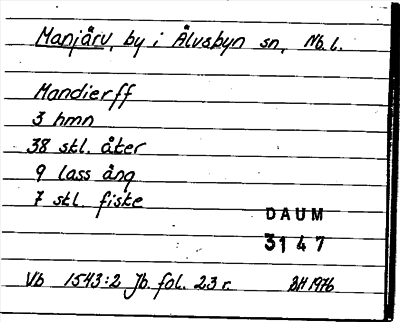 Manjärv, by i Älvsbyn sn, Nb.l.
Mandierff
3 hmn
38 skl. åker
9 lass äng
7 skl. fiske
DAUM
3147
Vb 1543:2 Jb fol. 23 r. BH 1976